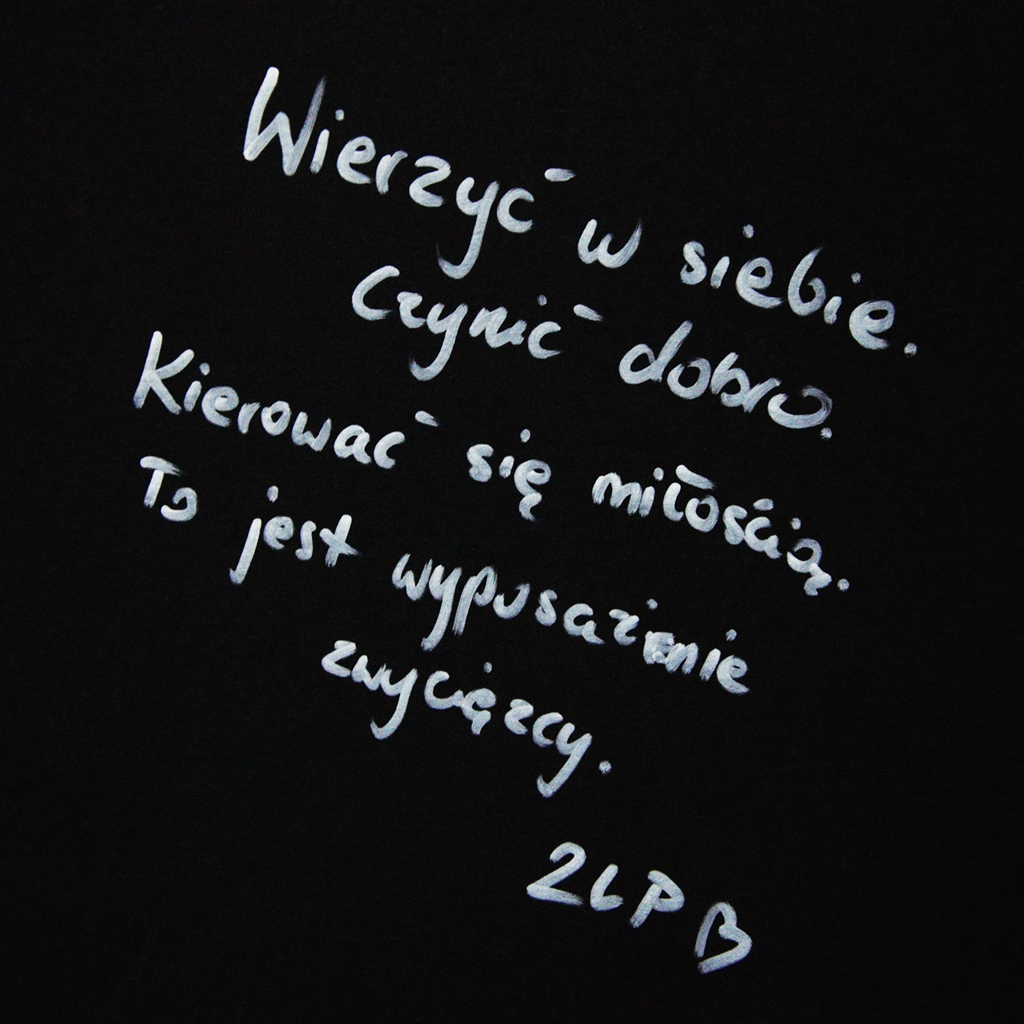 Wierzyć w siebie.
Czynić dobro.
Kierować się miłością.
To jest wyposażenie
zwycięzcy.
2LP